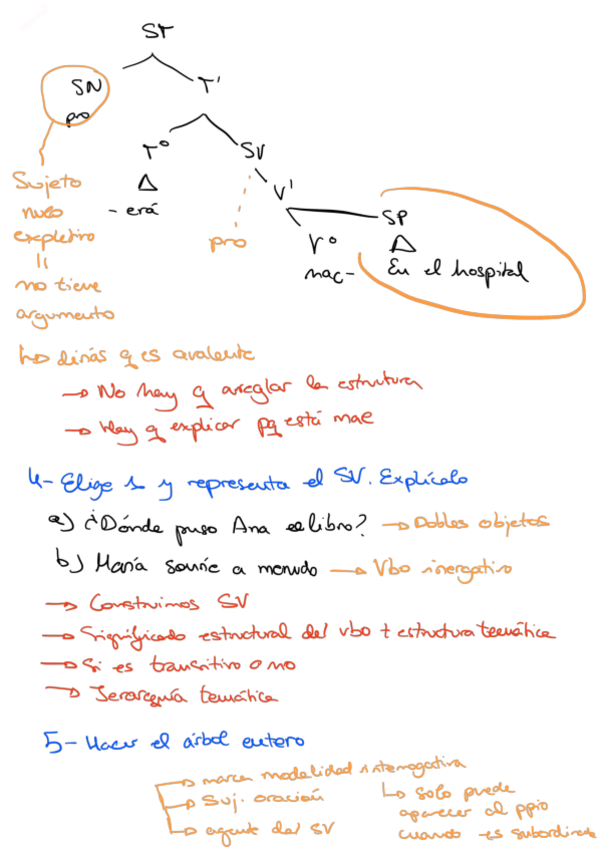 ST
SN
pro
T'
T⁰
SV
- erá
V'
Sujeto
nulo
expletivo
=
no tiene
argumento
pro
V⁰
nac-
SP
En el hospital
↳ dirás q es avalente
→ No hay q arreglar la estructura
→ Hay q explicar pq está mal
4- Elige 1 y representa el SV. Explícalo
a) ¿Dónde puso Ana el libro? → Dobles objetos
b) María sonríe a menudo → Vbo inergativo
→ Construimos SV
→ Significado estructural del vbo + estructura temática
→ Si es transitivo o no
→ Jerarquía temática
5- Hacer el árbol entero
→ marca modalidad interrogativa
→ Suj. oración
→ agente del SV
↳ solo puede
aparecer al ppio
cuando es subordinada